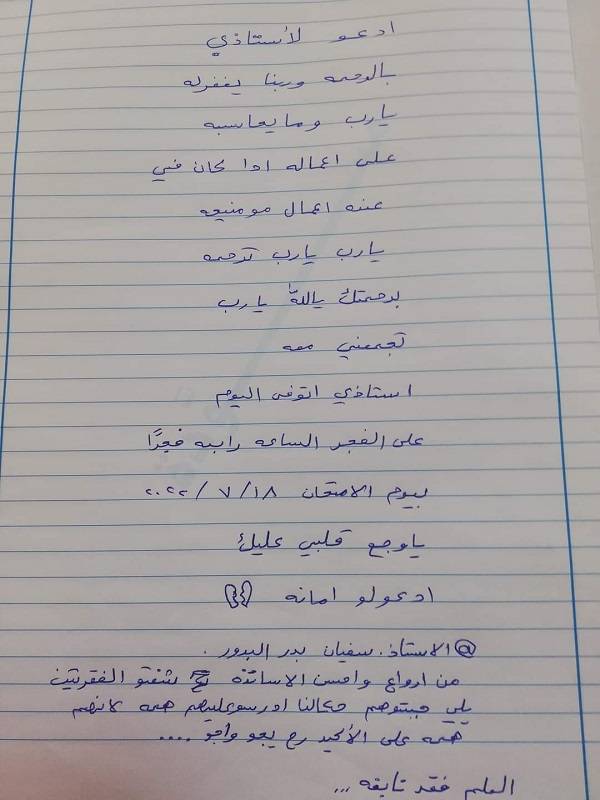 ادعو لأستاذي
بالرحمه وربنا يغفرله
يارب وما يحاسبه
على اعماله اذا كان في
عنه اعمال مو منيحه
يارب يارب ترحمه
برحمتك ياالله يارب
تجمعني معه
استاذي اتوفى اليوم
على الفجر الساعه رابعه فجرًا
بيوم الامتحان ١٨/ ٧/ ٢٠٢٢
ياوجع قلبي عليك
ادعولو امانه
@ الاستاذ. سفيان بدر البدور .
من اروع واحسن الاساتذه شفتو الفقرتين
يلي جبتوهم حكالنا ادرسو عليهم همه لانهم
همه على الأكيد رح يجو واجو ....
العلم فقد تابعه ...